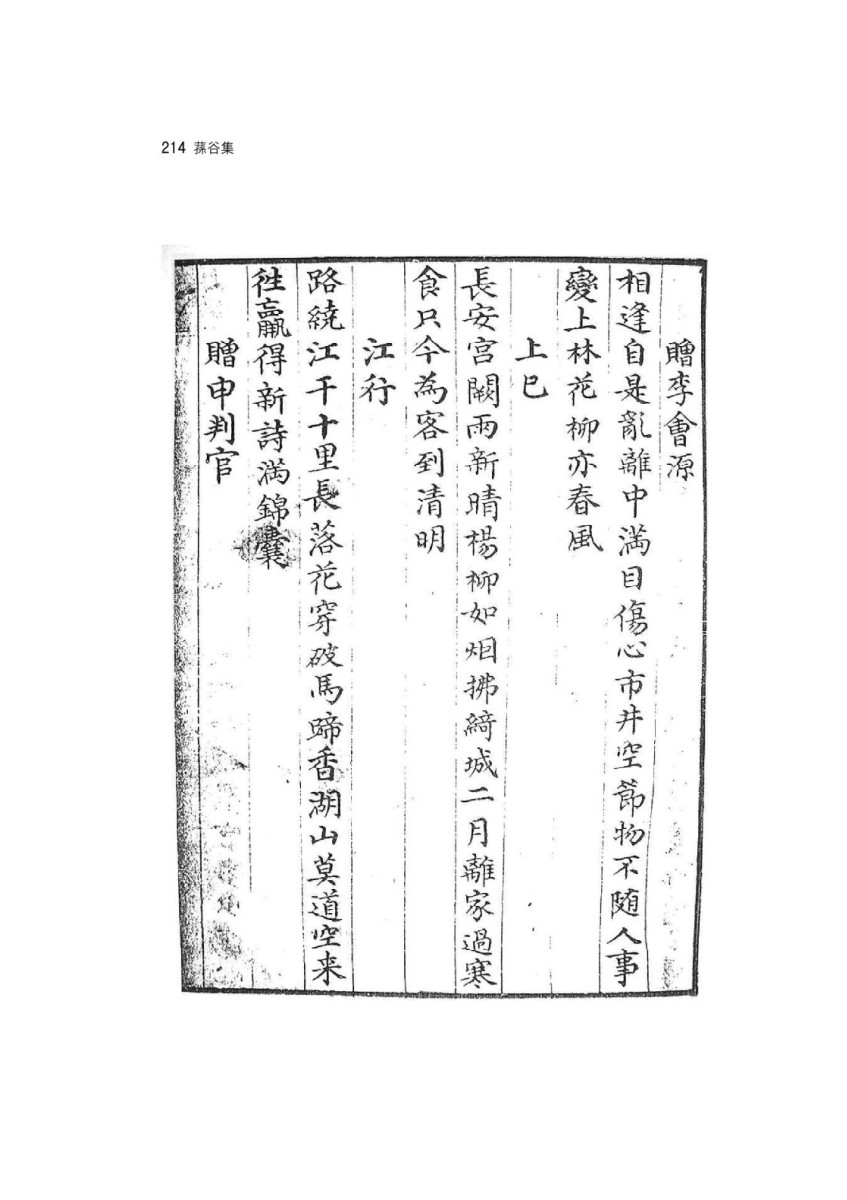 214 蓀谷集
贈李會源
相逢自是亂離中滿目傷心市井空節物不随人事
變上林花柳亦春風
上巳
長安宮闕雨新晴楊柳如烟拂綺城二月離家過寒
食只今為客到清明
江行
路繞江干十里長落花穿破馬蹄香湖山莫道空来
徃贏得新詩滿錦囊
贈申判官